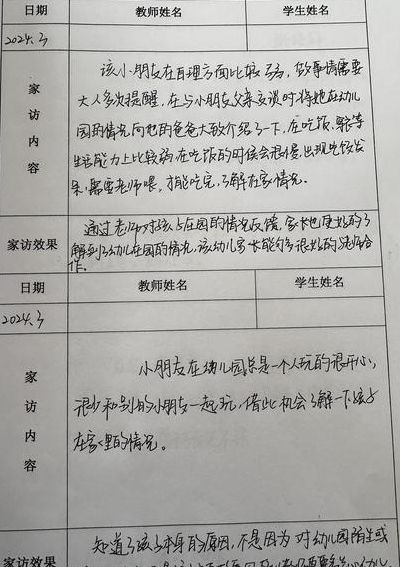 日期 教师姓名 学生姓名
2024.3
家访内容
该小朋友在自理方面比较弱，做事情需要
大人多次提醒，在与小朋友父亲交谈时将她在幼儿
园的情况向她的爸爸大致介绍了一下，在吃饭、
生活能力上比较弱，在吃饭的时候会很慢，出现吃饭发
呆，需要老师喂，才能吃完，了解在家情况。
家访效果
通过老师对孩子在园的情况反馈，家长也更好的了
解到了幼儿在园的情况，该幼儿家长能够很好的与老师合
作。
日期 教师姓名 学生姓名
2024.3
家访内容
小朋友在幼儿园总是一个人玩的很开心，
很少和别的小朋友一起玩，借此机会了解一下孩子
在家里的情况。
家访效果
知道了孩子本身的原因，不是因为对幼儿园陌生或